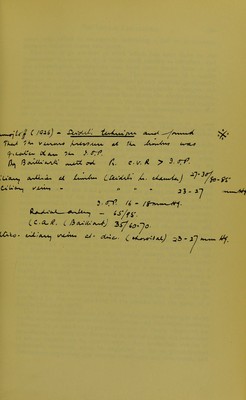 (1936) - Seidel's technique and found
that the venous pressure at the limbus was
greater than the I.O.P.
By Bailliart's method Pr. C.V.R > I.O.P.
ciliary arteries at limbus (Seidel's pr. chamber) 27-30/80-85
ciliary veins - " " " 23-27 mm Hg
I.O.P. 16-18 mm Hg.
Radial artery - 65/95.
(C.A.R. (Bailliart) 35/60-70.
ciliary veins at disc. (choroidal) 23-27 mm Hg.